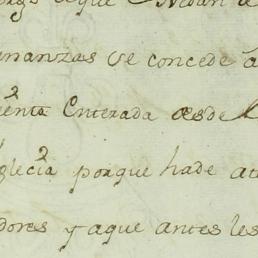 que
nanzas se concede a
uenta Enterada desde
Yglecia porque hade at
dores y aque antes les